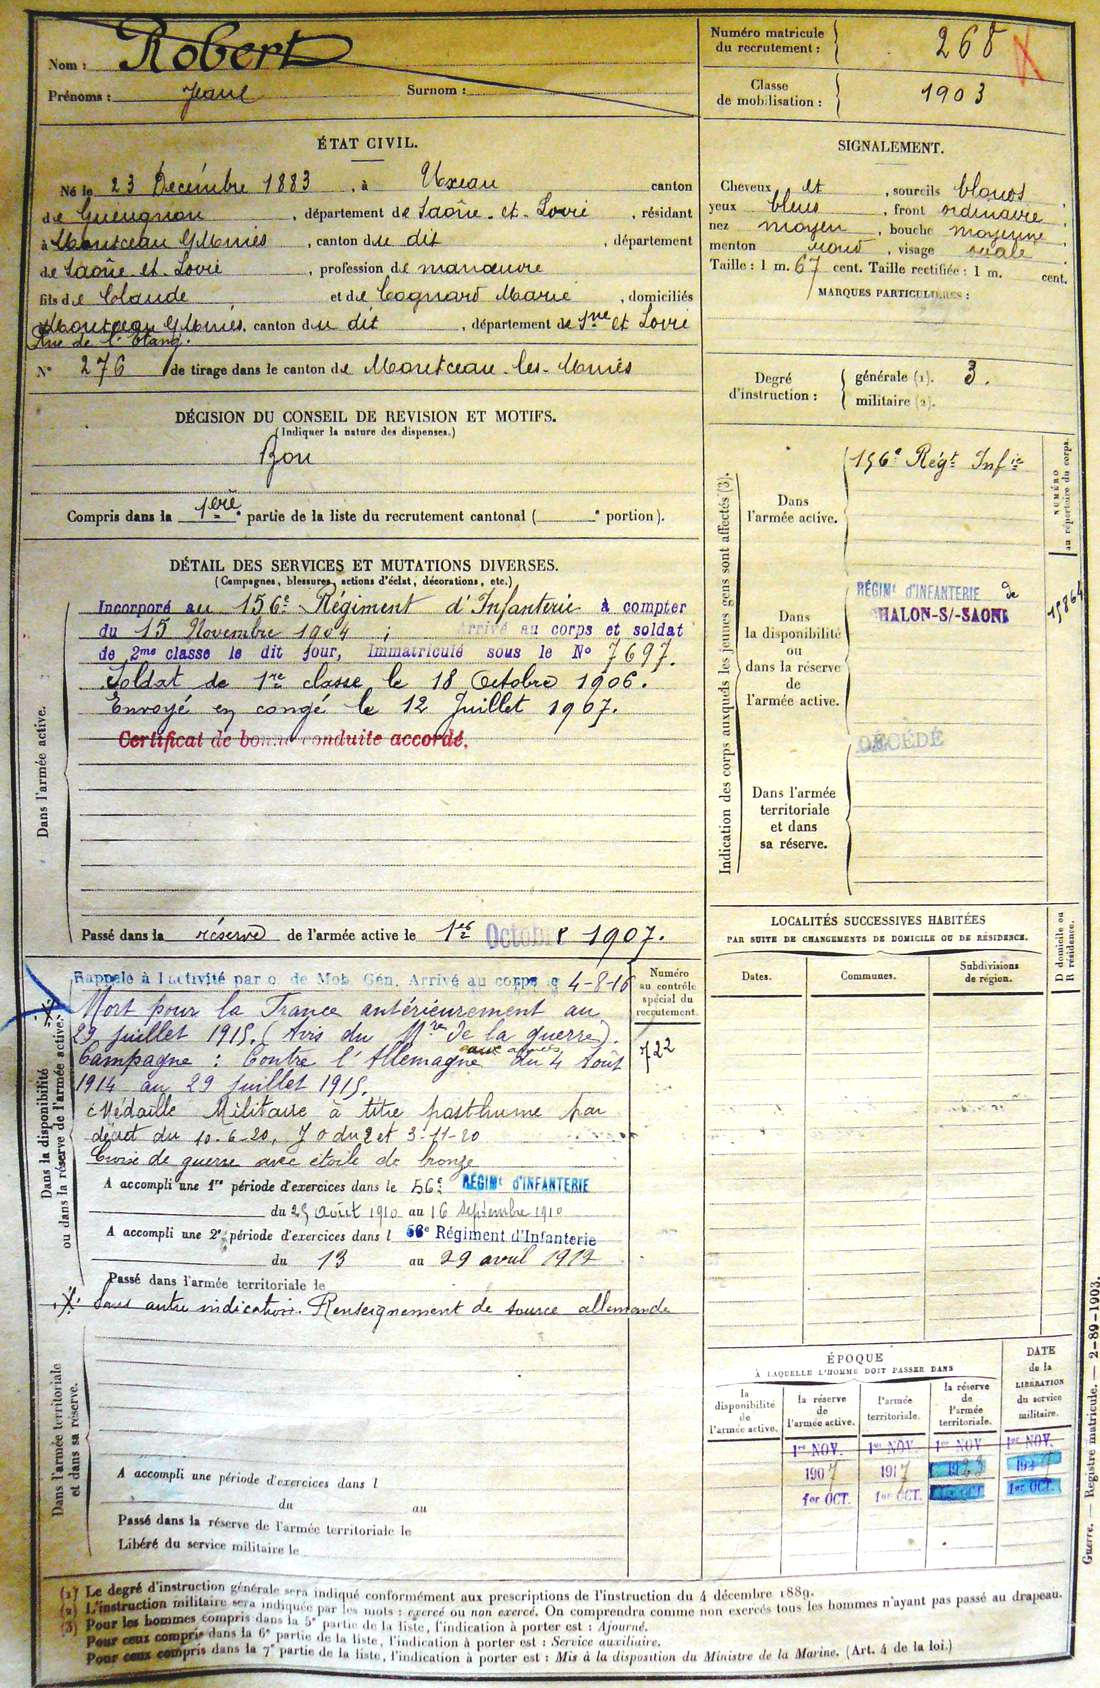 Nom : Robert
Prénoms : Jean Surnom :
Numéro matricule du recrutement : 268
Classe de mobilisation : 1903
ÉTAT CIVIL.
Né le 23 Décembre 1883, à Uxeau canton
de Gueugnon, département de Saône-et-Loire, résidant
à Montceau les Mines, canton du dit, département
de Saône-et-Loire, profession de manœuvre
fils de Claude et de Cognard Marie, domiciliés
Montceau les Mines, canton du dit, département de Sne et Loire
Rue de l'Etang.
N° 276 de tirage dans le canton de Montceau-les-Mines
SIGNALEMENT.
Cheveux et, sourcils blonds,
yeux bleus, front ordinaire,
nez moyen, bouche moyenne,
menton rond, visage ovale.
Taille : 1 m. 67 cent. Taille rectifiée : 1 m. cent.
MARQUES PARTICULIÈRES :
Degré d'instruction : générale (1). 3.
militaire (2).
DÉCISION DU CONSEIL DE REVISION ET MOTIFS.
(Indiquer la nature des dispenses.)
Bon
Compris dans la 1ère partie de la liste du recrutement cantonal ( e portion).
DÉTAIL DES SERVICES ET MUTATIONS DIVERSES.
(Campagnes, blessures, actions d'éclat, décorations, etc.)
Dans l'armée active.
Incorporé au 156e Régiment d'Infanterie à compter
du 15 Novembre 1904 ; Arrivé au corps et soldat
de 2me classe le dit jour, Immatriculé sous le No 7697.
Soldat de 1re classe le 18 Octobre 1906.
Envoyé en congé le 12 Juillet 1907.
Certificat de bonne conduite accordé.
Passé dans la réserve de l'armée active le 1er Octobre 1907.
Indication des corps auxquels les jeunes gens sont affectés (3).
NUMÉRO au répertoire du corps.
Dans l'armée active. 156e Régt Infie
Dans la disponibilité ou dans la réserve de l'armée active.
RÉGIMt D'INFANTERIE de
CHALON-S/-SAONE
15864
Dans l'armée territoriale et dans sa réserve.
DÉCÉDÉ
Dans la disponibilité ou dans la réserve de l'armée active.
Numéro au contrôle spécial du recrutement.
722
Rappelé à l'activité par o. de Mob. Gén. Arrivé au corps le 4-8-16
Mort pour la France antérieurement au
29 juillet 1915. (Avis du Mre de la guerre).
Campagne : Contre l'Allemagne aux armées du 4 Août
1914 au 29 juillet 1915.
Médaille Militaire à titre posthume par
décret du 10-6-20, J O du 2 et 3-11-20
Croix de guerre avec étoile de bronze
A accompli une 1re période d'exercices dans le 56e RÉGIMt D'INFANTERIE
du 25 août 1910 au 16 septembre 1910
A accompli une 2e période d'exercices dans l 56e Régiment d'Infanterie
du 13 au 29 avril 1912
Passé dans l'armée territoriale le
Sans autre indication. Renseignement de source allemande
LOCALITÉS SUCCESSIVES HABITÉES
PAR SUITE DE CHANGEMENTS DE DOMICILE OU DE RÉSIDENCE.
Dates. Communes. Subdivisions de région. D domicile ou R résidence.
Dans l'armée territoriale et dans sa réserve.
A accompli une période d'exercices dans l
du au
Passé dans la réserve de l'armée territoriale le
Libéré du service militaire le
ÉPOQUE
À LAQUELLE L'HOMME DOIT PASSER DANS
la disponibilité de l'armée active. la réserve de l'armée active. l'armée territoriale. la réserve de l'armée territoriale.
DATE de la LIBÉRATION du service militaire.
1er NOV. 1er NOV. 1er NOV. 1er NOV.
1907 1917 1923
1er OCT. 1er OCT. 1er OCT. 1er OCT.
Guerre. — Registre matricule. — 2-89-1903.
(1) Le degré d'instruction générale sera indiqué conformément aux prescriptions de l'instruction du 4 décembre 1889.
(2) L'instruction militaire sera indiquée par les mots : exercé ou non exercé. On comprendra comme non exercés tous les hommes n'ayant pas passé au drapeau.
(3) Pour les hommes compris dans la 5e partie de la liste, l'indication à porter est : Ajourné.
Pour ceux compris dans la 6e partie de la liste, l'indication à porter est : Service auxiliaire.
Pour ceux compris dans la 7e partie de la liste, l'indication à porter est : Mis à la disposition du Ministre de la Marine. (Art. 4 de la loi.)